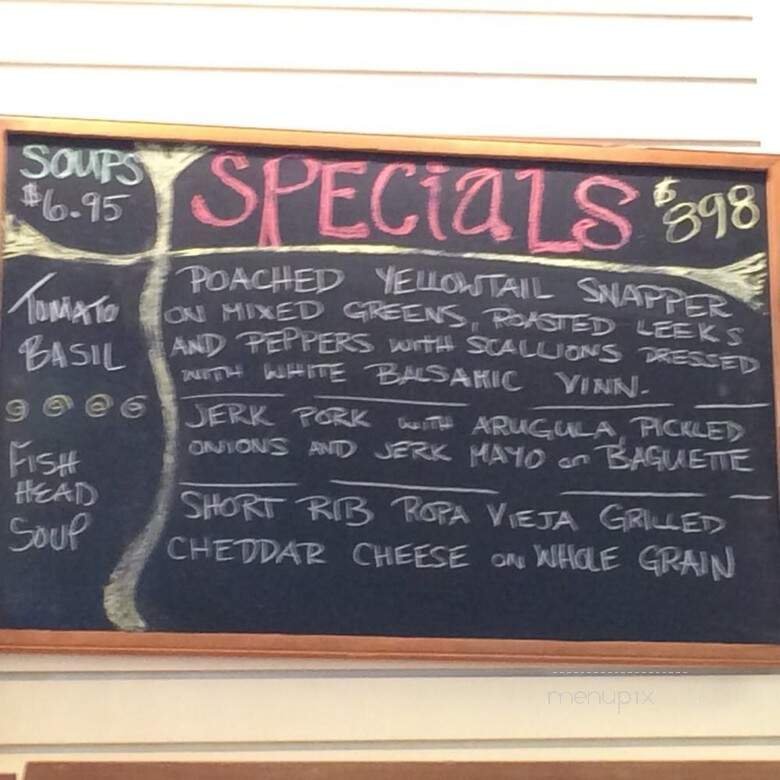 SOUPS
$6.95
TOMATO
BASIL
FISH
HEAD
SOUP
SPECiALS
$898
POACHED YELLOWTAIL SNAPPER
ON MIXED GREENS, ROASTED LEEKS
AND PEPPERS WITH SCALLIONS DRESSED
WITH WHITE BALSAMIC VINN.
JERK PORK WITH ARUGULA, PICKLED
ONIONS AND JERK MAYO on BAGUETTE
SHORT RIB ROPA VIEJA GRILLED
CHEDDAR CHEESE ON WHOLE GRAIN
menupix